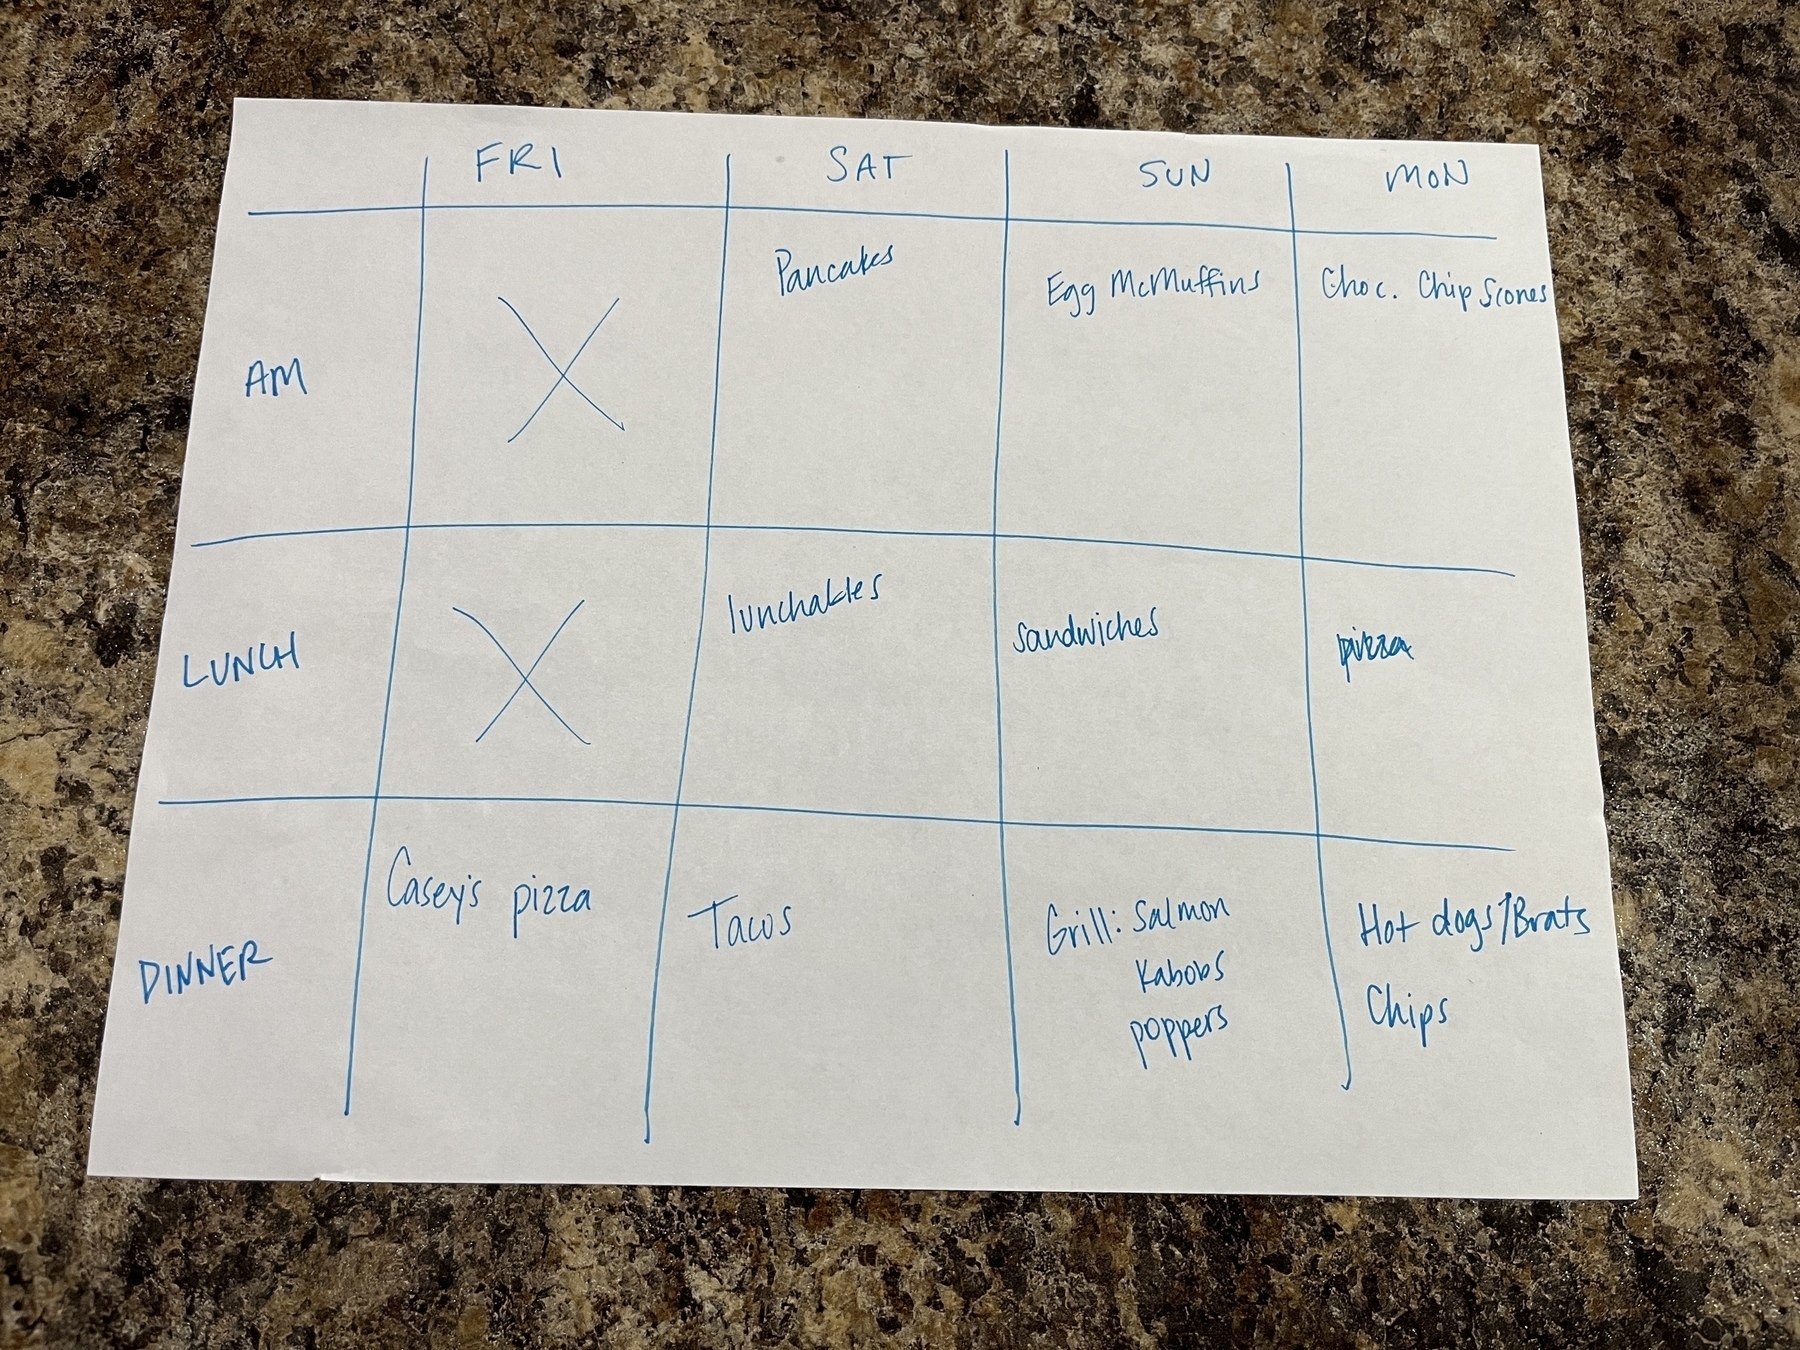 FRI SAT SUN MON
AM X Pancakes Egg McMuffins Choc. Chip Scones
LUNCH X lunchables sandwiches pizza
DINNER Casey's pizza Tacos Grill: Salmon Hot dogs/Brats
Kabobs Chips
poppers